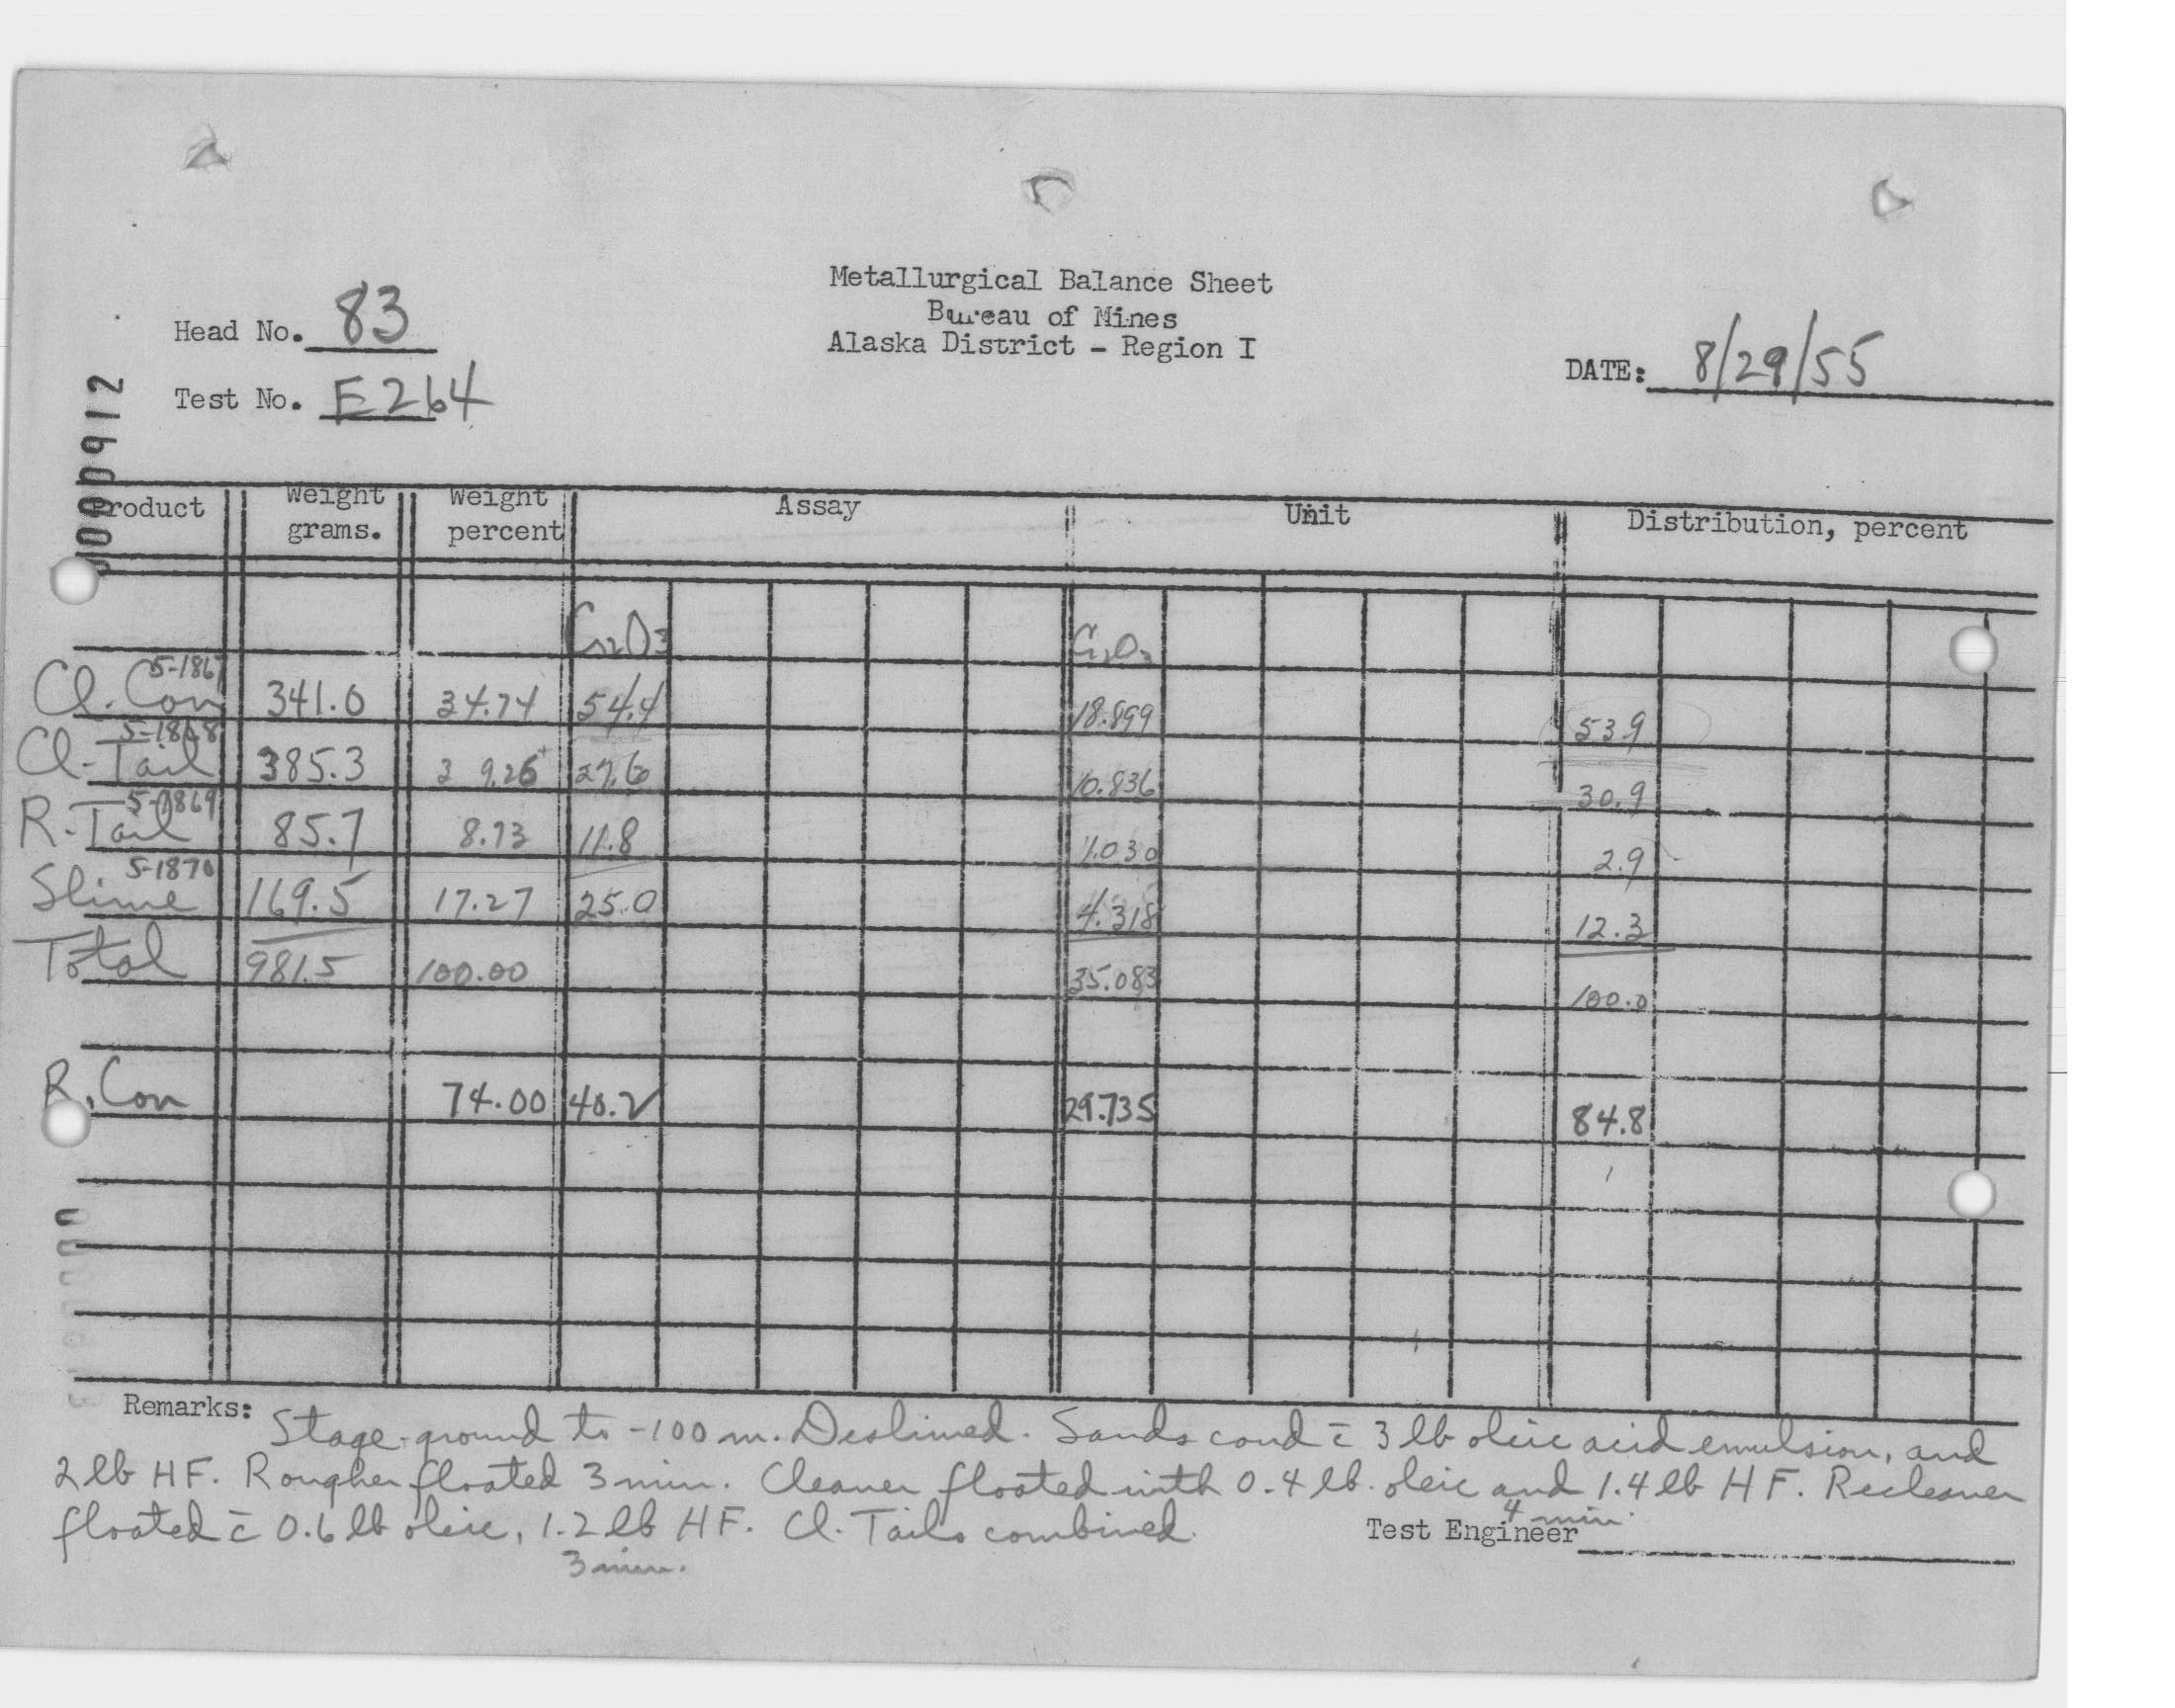 Metallurgical Balance Sheet
Bureau of Mines
Alaska District - Region I
Head No. 83
Test No. E264
DATE: 8/29/55
000912
Product Weight grams. Weight percent Assay Unit Distribution, percent
Cr2O3 Cr2O3
Cl. Con 5-1867 341.0 34.74 54.4 18.899 53.9
Cl. Tail 5-1868 385.3 39.26+ 27.6 10.836 30.9
R. Tail 5-1869 85.7 8.73 11.8 1.030 2.9
Slime 5-1870 169.5 17.27 25.0 4.318 12.3
Total 981.5 100.00 35.083 100.0
R. Con 74.00 40.2 29.735 84.8
Remarks: Stage-ground to -100 m. Deslimed. Sands cond c̄ 3 lb oleic acid emulsion, and
2 lb HF. Rougher floated 3 min. Cleaner floated with 0.4 lb. oleic and 1.4 lb HF. Recleaner
4 min.
floated c̄ 0.6 lb oleic, 1.2 lb HF. Cl. Tails combined.
3 min.
Test Engineer